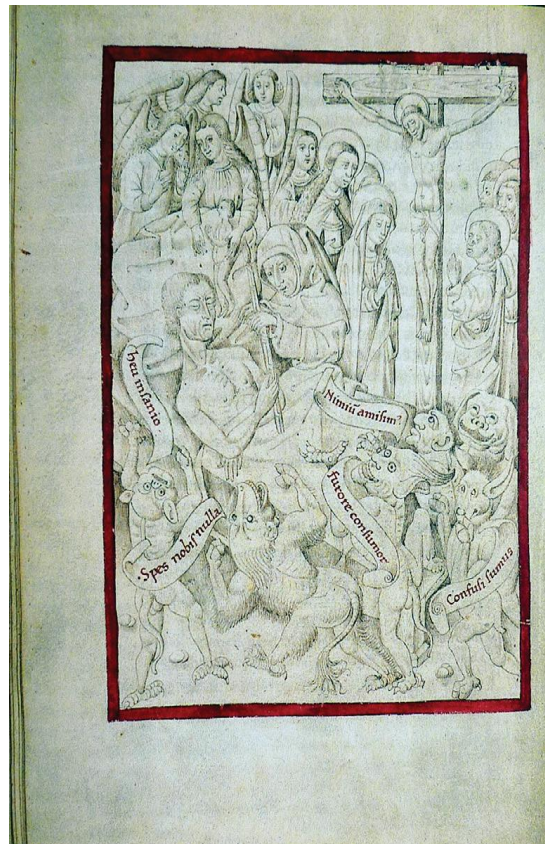 heu insanio.
Nimiū amisim?
.Spes nobis nulla
furore consumor
Confusi sumus